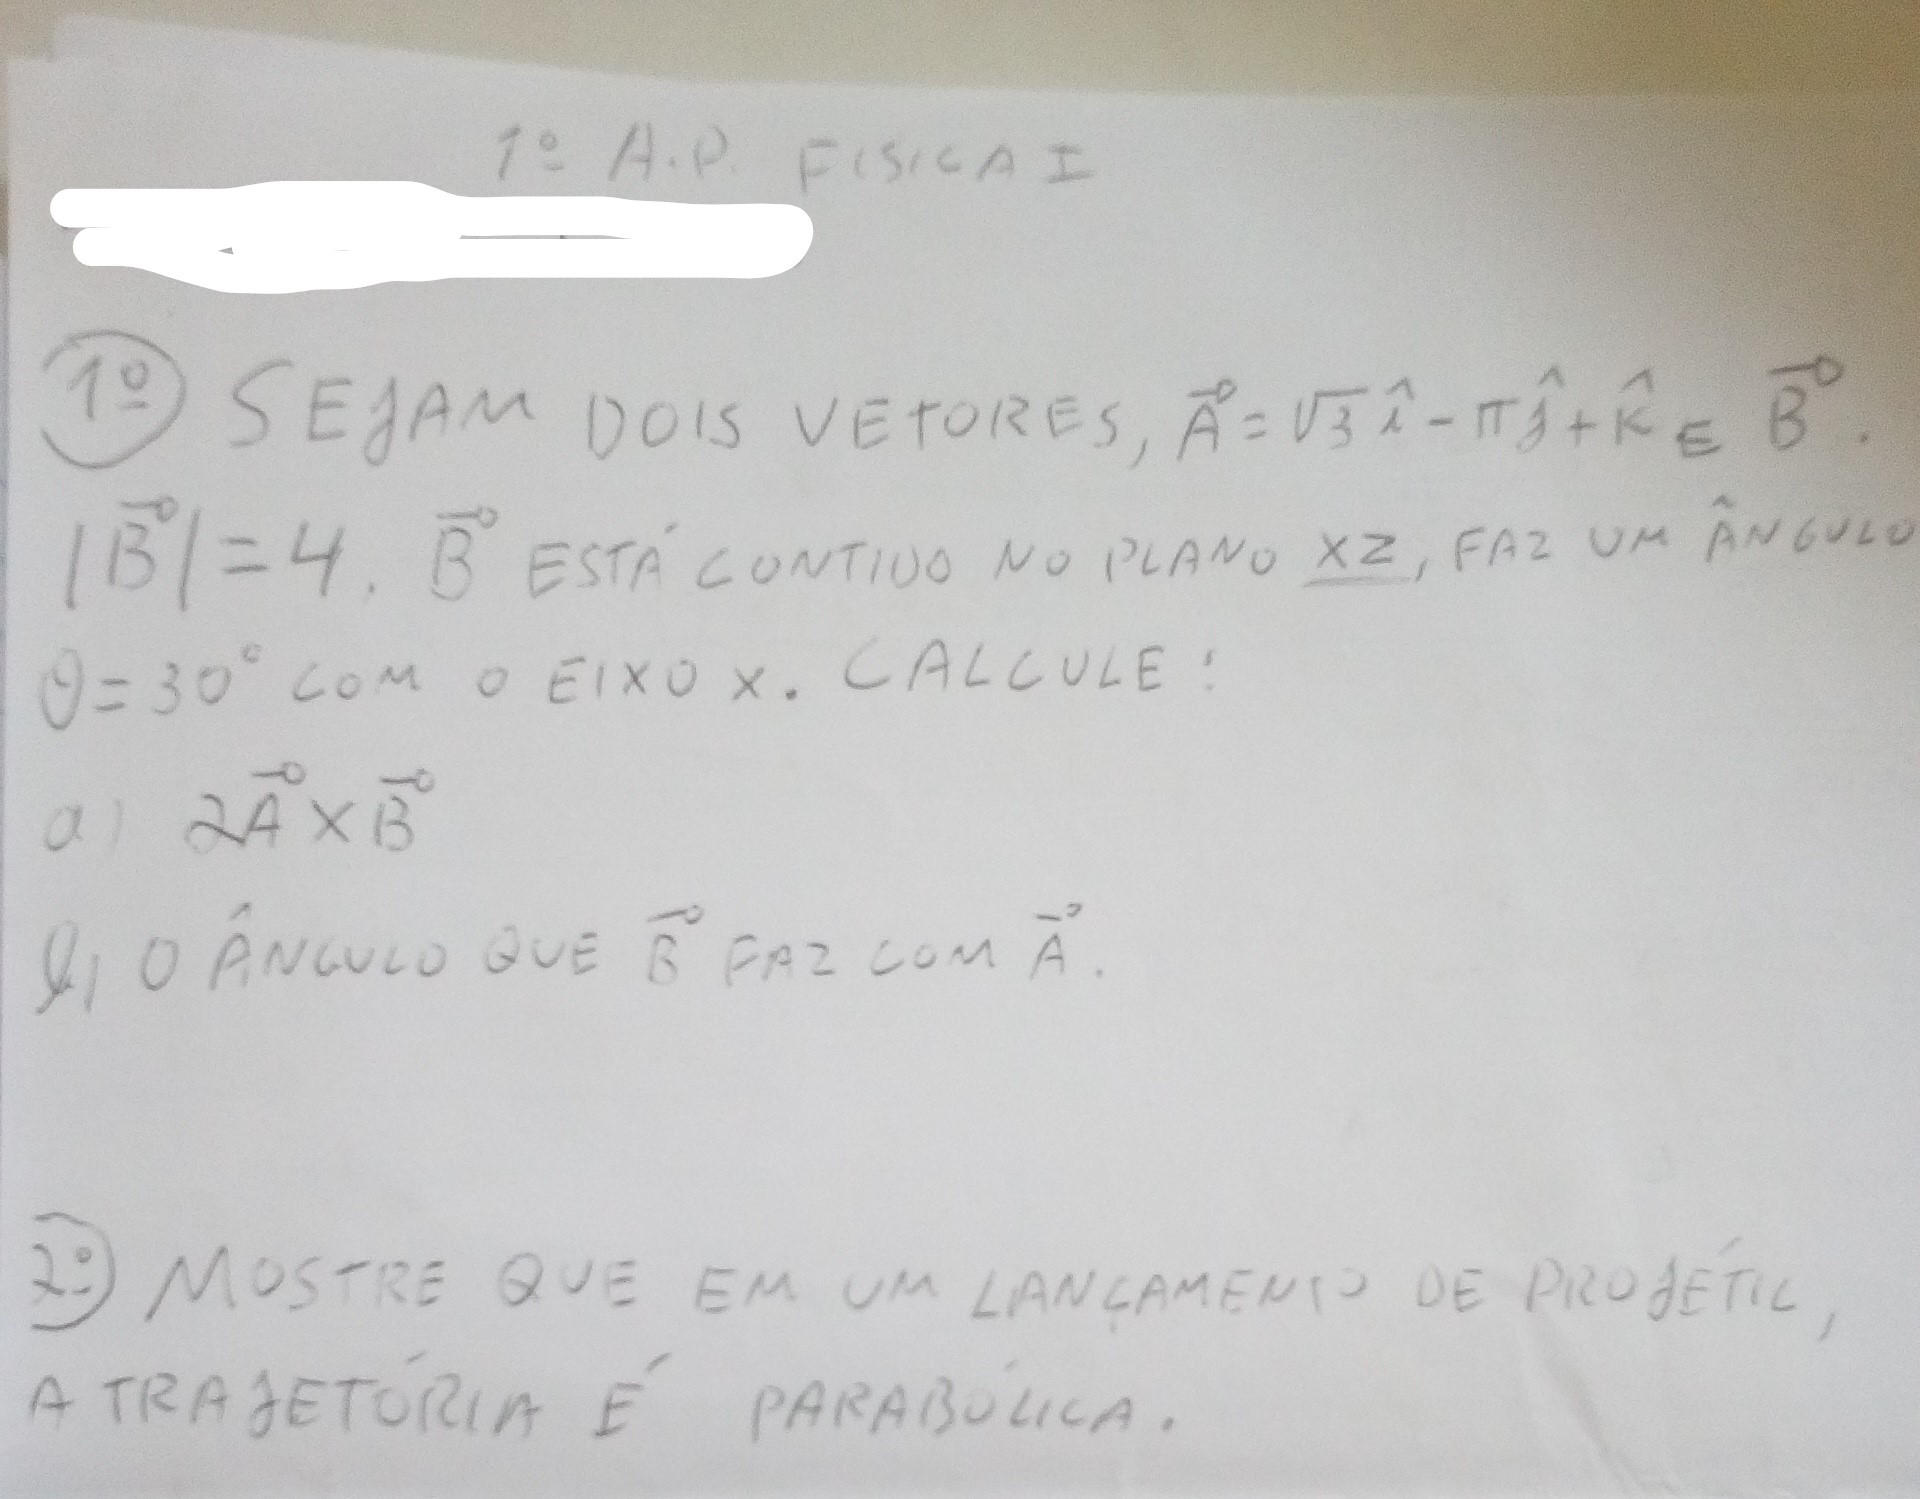 1º A.P. FISICA I
1º SEJAM DOIS VETORES, A⃗ = √3 î - π ĵ + k̂ E B⃗.
|B⃗| = 4. B⃗ ESTÁ CONTIDO NO PLANO XZ, FAZ UM ÂNGULO
θ = 30° COM O EIXO X. CALCULE:
a) 2A⃗ X B⃗
b) O ÂNGULO QUE B⃗ FAZ COM A⃗.
2º) MOSTRE QUE EM UM LANÇAMENTO DE PROJÉTIL,
A TRAJETÓRIA É PARABÓLICA.